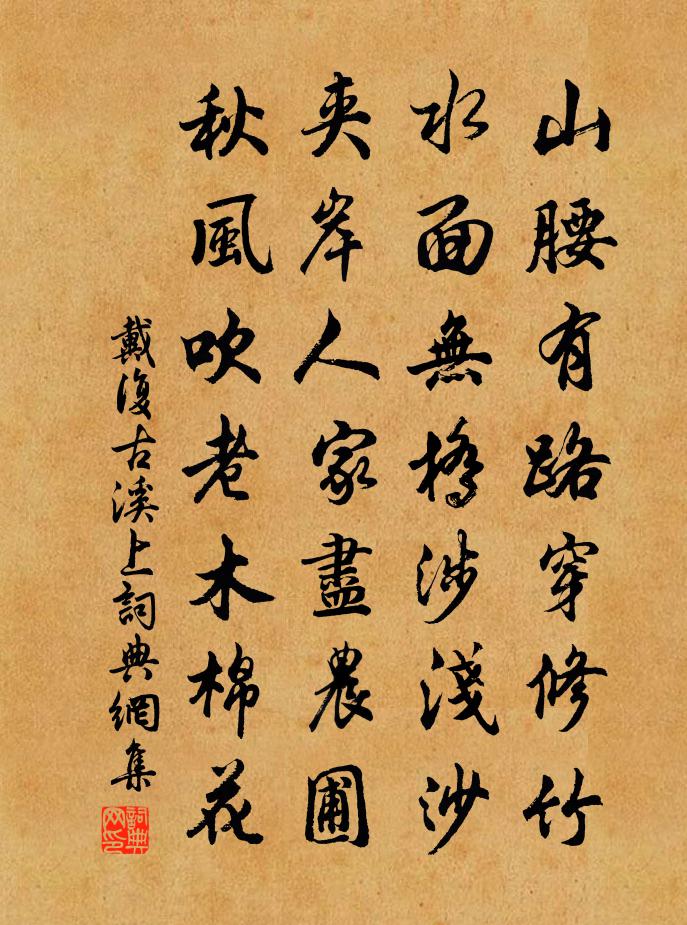 山腰有路穿修竹
水面無橋涉淺沙
夾岸人家盡農圃
秋風吹老木棉花
戴復古溪上詞典網集
詞典网印